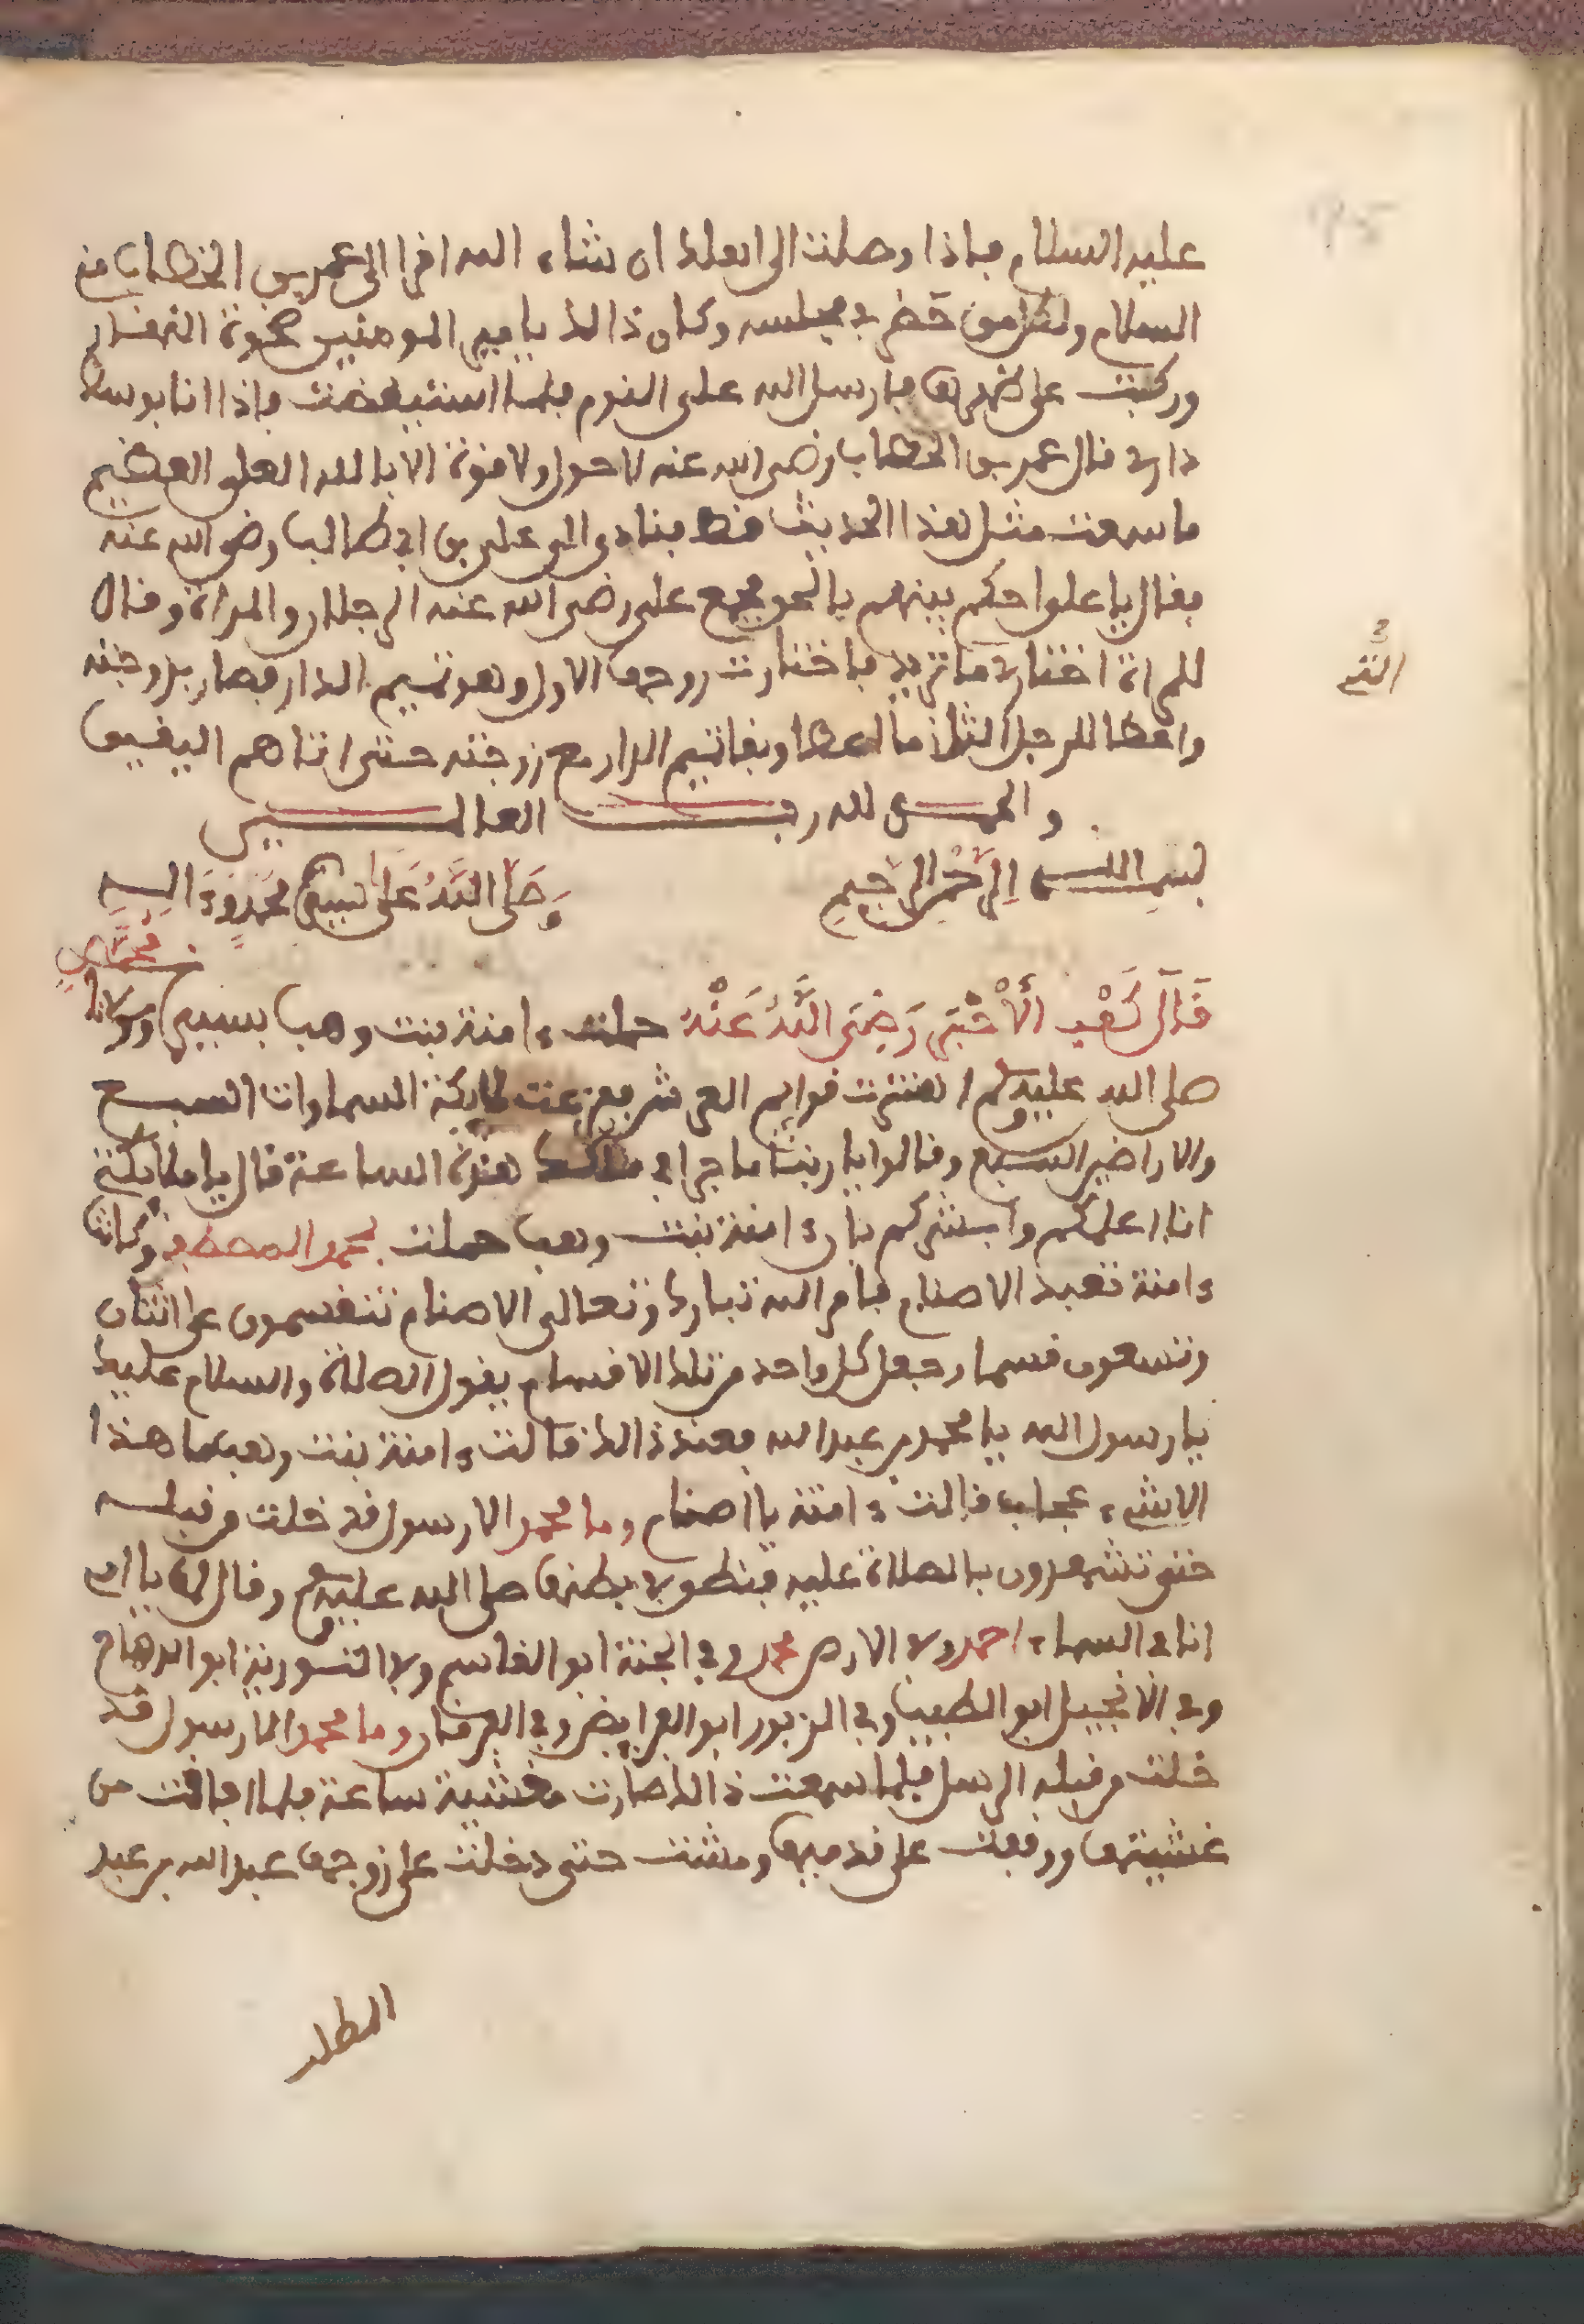 عليه السلام فاذا وصلت الى اهلك ان شاء الله افرا الى عمر بن الخطاب مني
السلام ولكرامون خضر في مجلسه وكان ذالك يا امير المومنين ضحوة النهار
وركبت على ظهرها فارسل الله على النوم فلما استيفضت فاذا انا بوسط
داري فال عمر بن الخطاب رضي الله عنه لا حول ولا فوة الا بالله العلي العظيم
ما سمعت مثل هذا الحديث فط فنادى الى علي بن ابي طالب رضي الله عنه
ففال يا علي احكم بينهم بالحق فجمع علي رضي الله عنه الرجلان والمراة وفال
للمراة اختاري ما تريد فاختارت زوجها الاول وهو تميم الدار فصار بزوجته
واعطا للرجل الثان ما اعطا وبفا تميم الدار مع زوجته حتى اتاهم اليفين
والحمد لله رب العالمين
بسم الله الرحمن الرحيم وصلى الله على نبينا محمد وءاله
فال كعب الاحبار رضي الله عنه حملت ءامنة بنت وهب بسيدنا ومولانا محمد
صلى الله عليه وسلم اهتزت فوايم العرش فعزعت ملايكة السماوات السبع
والاراضين السبع وفالوا يا ربنا ما جرا في ملكك هذه الساعة فال يا ملايكتي
انا اعلمكم وابشركم بان ءامنة بنت وهب حملت بمحمد المصطفى وكانت
ءامنة تعبد الاصنام فامر الله تبارك وتعالى الاصنام تنفسمون على اثنان
وتسعون فسما وجعل كل واحد من تلك الافسام يفول الصلاة والسلام عليك
يا رسول الله يا محمد بن عبد الله فعند ذالك فالت ءامنة بنت وهب ما هذا
الا شيء عجاب فالت ءامنة يا اصنام وما محمد الا رسول فد خلت من فبله
حتى تشهدون بالصلاة عليه فنطق في بطنها صلى الله عليه وسلم وفال لها يا امي
انا في السماء احمد وفي الارض محمد وفي الجنة ابو الفاسم وفي التورية ابو الدهاح
وفي الانجيل ابو الطيب وفي الزبور ابو الفرايض وفي الفرفان وما محمد الا رسول فد
خلت من فبله الرسل فلما سمعت ذالك صارت مغشية ساعة فلما افافت من
غشيتها ووفعت على فدميها ومشت حتى دخلت على زوجها عبد الله بن عبد
المطلب